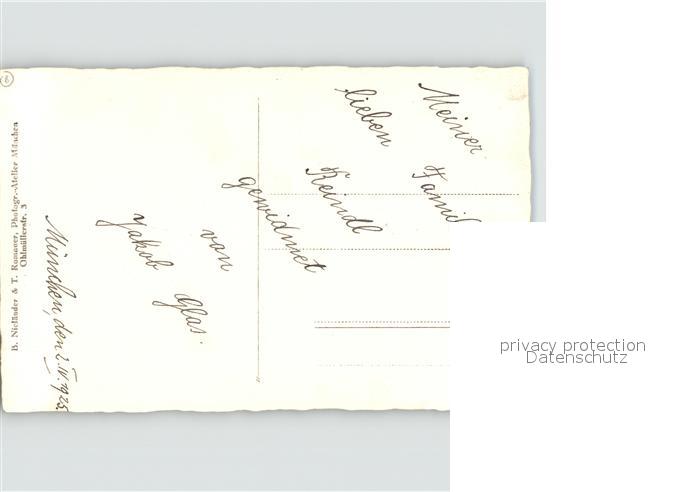 Meiner
lieben Famil
Reindl
gewidmet
von
Jakob Glas.
München, den 2. IV. 1925
B. Nieländer & T. Romauer, Photogr.-Atelier München
Ohlmüllerstr. 3
privacy protection
Datenschutz